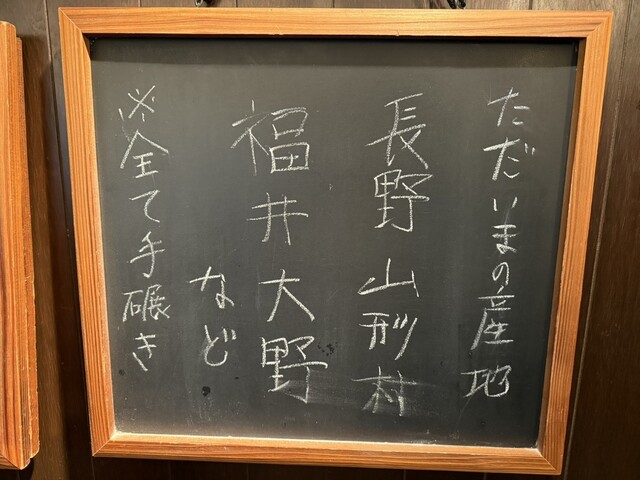 ただいまの産地
長野 山形村
福井 大野
など
※全て手碾き